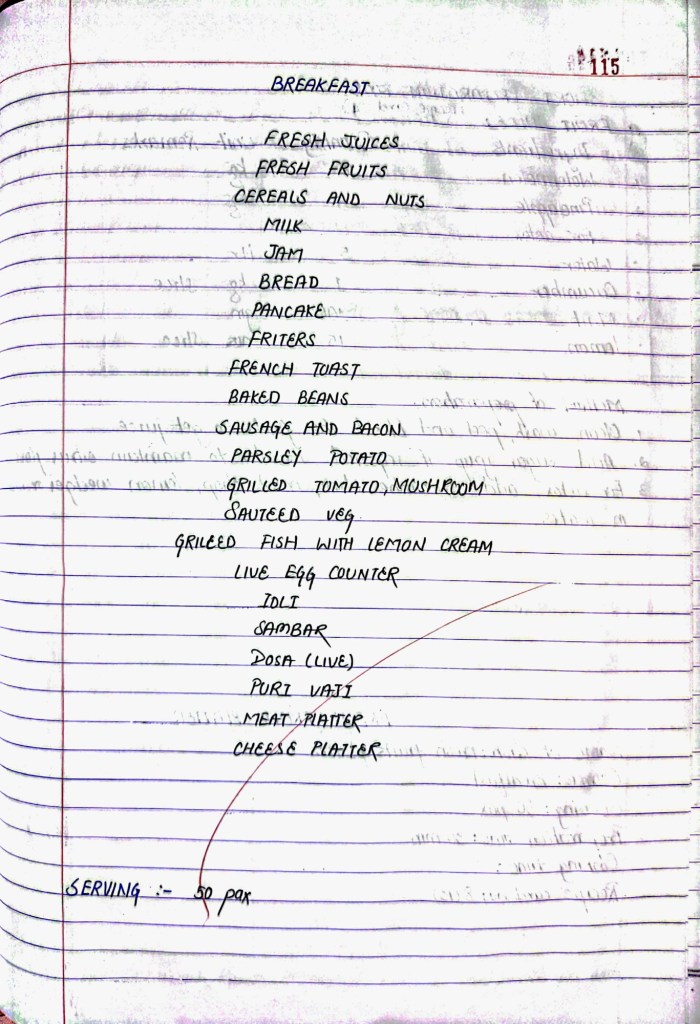 115
BREAKFAST
FRESH JUICES
FRESH FRUITS
CEREALS AND NUTS
MILK
JAM
BREAD
PANCAKE
FRITERS
FRENCH TOAST
BAKED BEANS
SAUSAGE AND BACON
PARSLEY POTATO
GRILLED TOMATO, MUSHROOM
SAUTEED VEG
GRILEED FISH WITH LEMON CREAM
LIVE EGG COUNTER
IDLI
SAMBAR
DOSA (LIVE)
PURI VAJI
MEAT PLATTER
CHEESE PLATTER
SERVING :- 50 pax